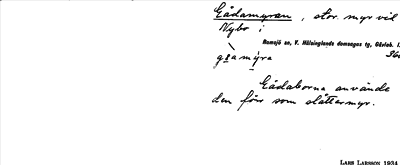 Gådamyran, stor myr vil
Nybo i
Ramsjö sn, V. Hälsinglands domsagas tg, Gävleb. l.
360
Gådaborna använde
den förr som slåttermyr.
LARS LARSSON 1934